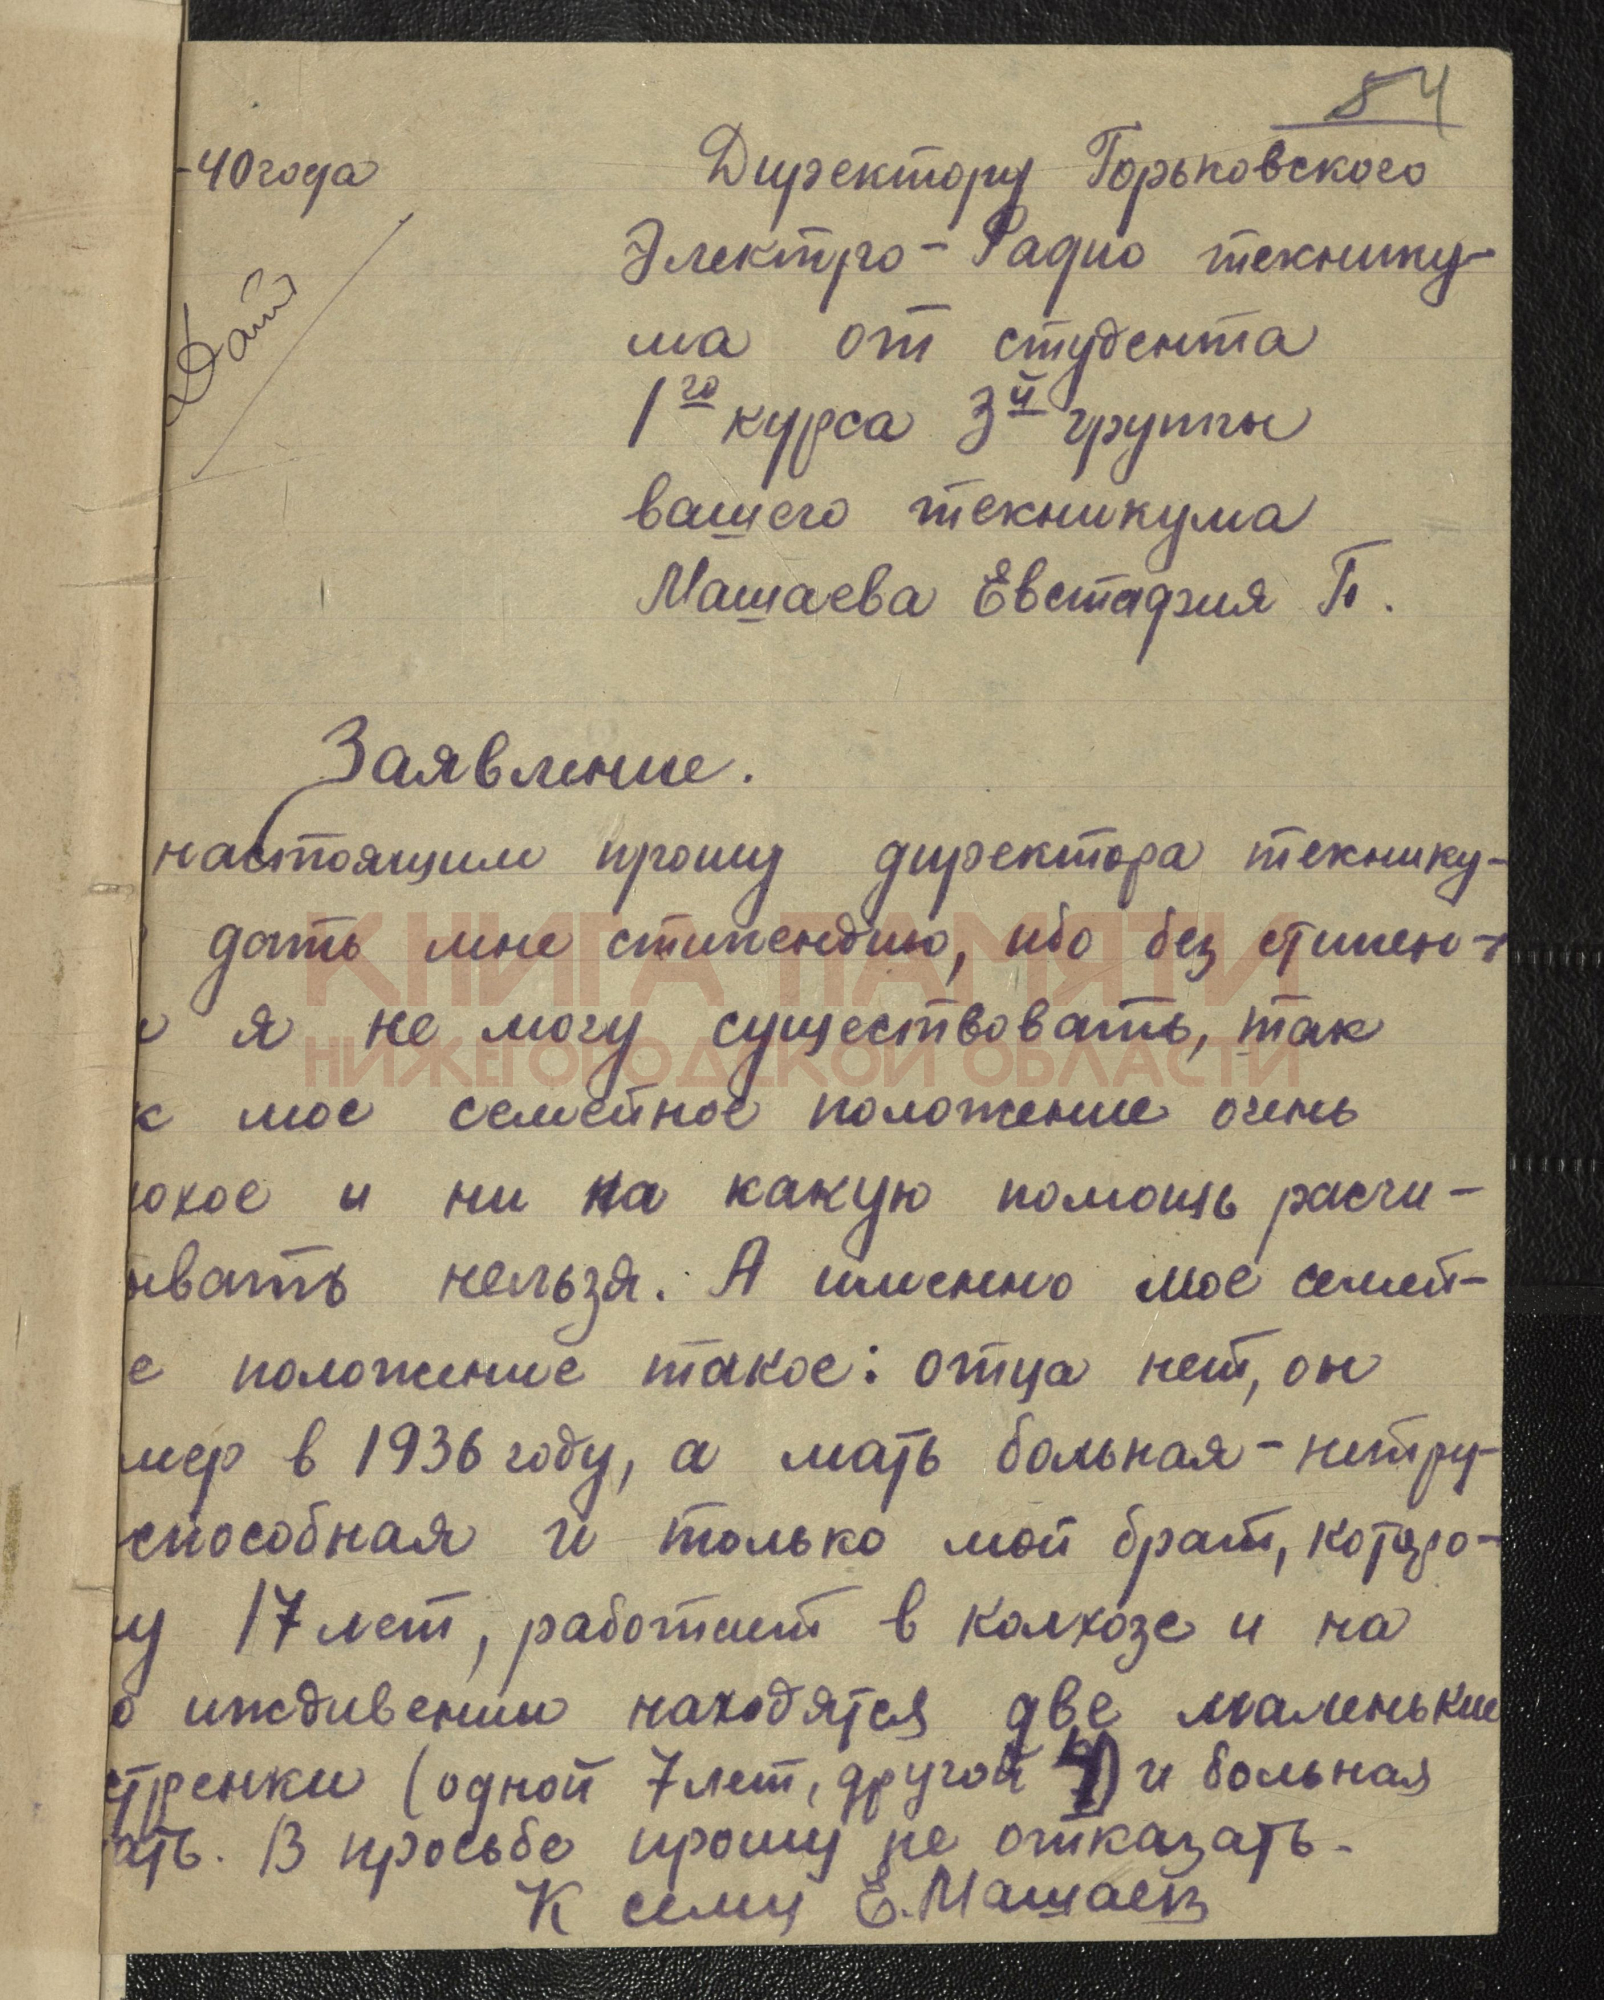 84
-40 года
Директору Горьковского
Дать
Электро-Радио технику-
ма от студента
1го курса 3й группы
вашего техникума
Машаева Евстафия П.
Заявление.
настоящим прошу директора технику-
дать мне стипендию, ибо без стипен-
и я не могу существовать, так
к мое семейное положение очень
охое и ни на какую помощь расчи-
ывать нельзя. А именно мое семей-
е положение такое: отца нет, он
мер в 1936 году, а мать больная-нетру-
способная и только мой брат, которо-
му 17 лет, работает в колхозе и на
о иждивении находятся две маленькие
стренки (одной 7 лет, другой 4) и больная
ать. В просьбе прошу не отказать.
К сему Е. Машаев
КНИГА ПАМЯТИ
НИЖЕГОРОДСКОЙ ОБЛАСТИ